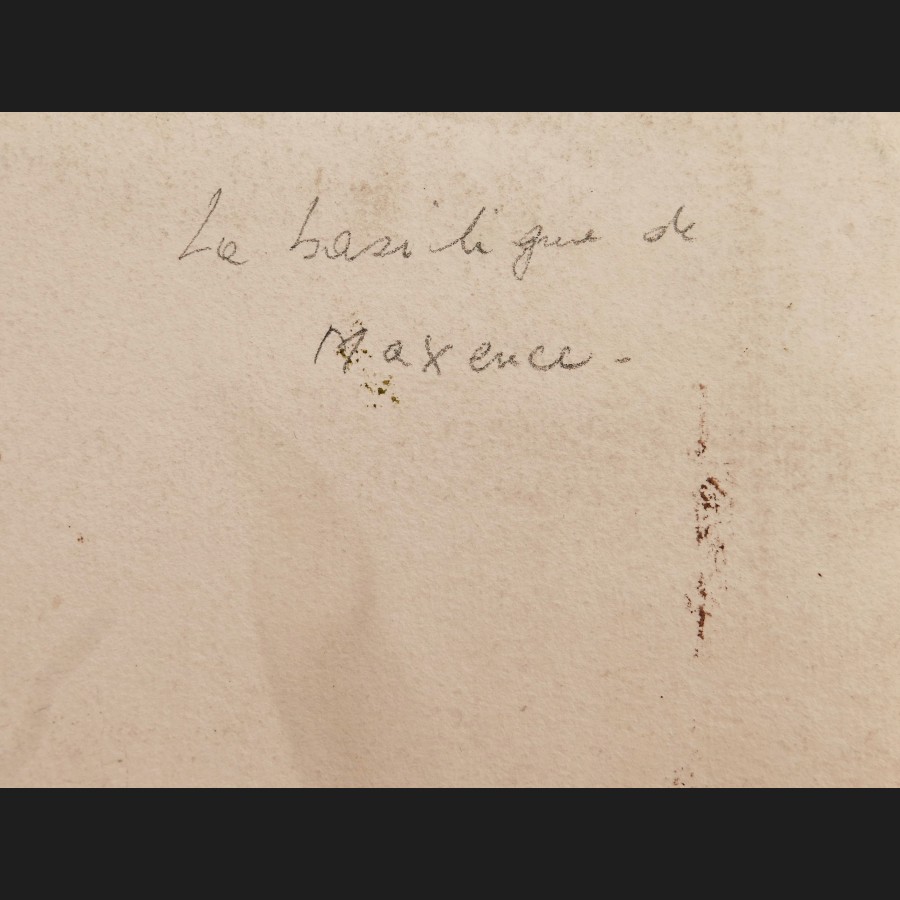 La basilique de
Maxence -